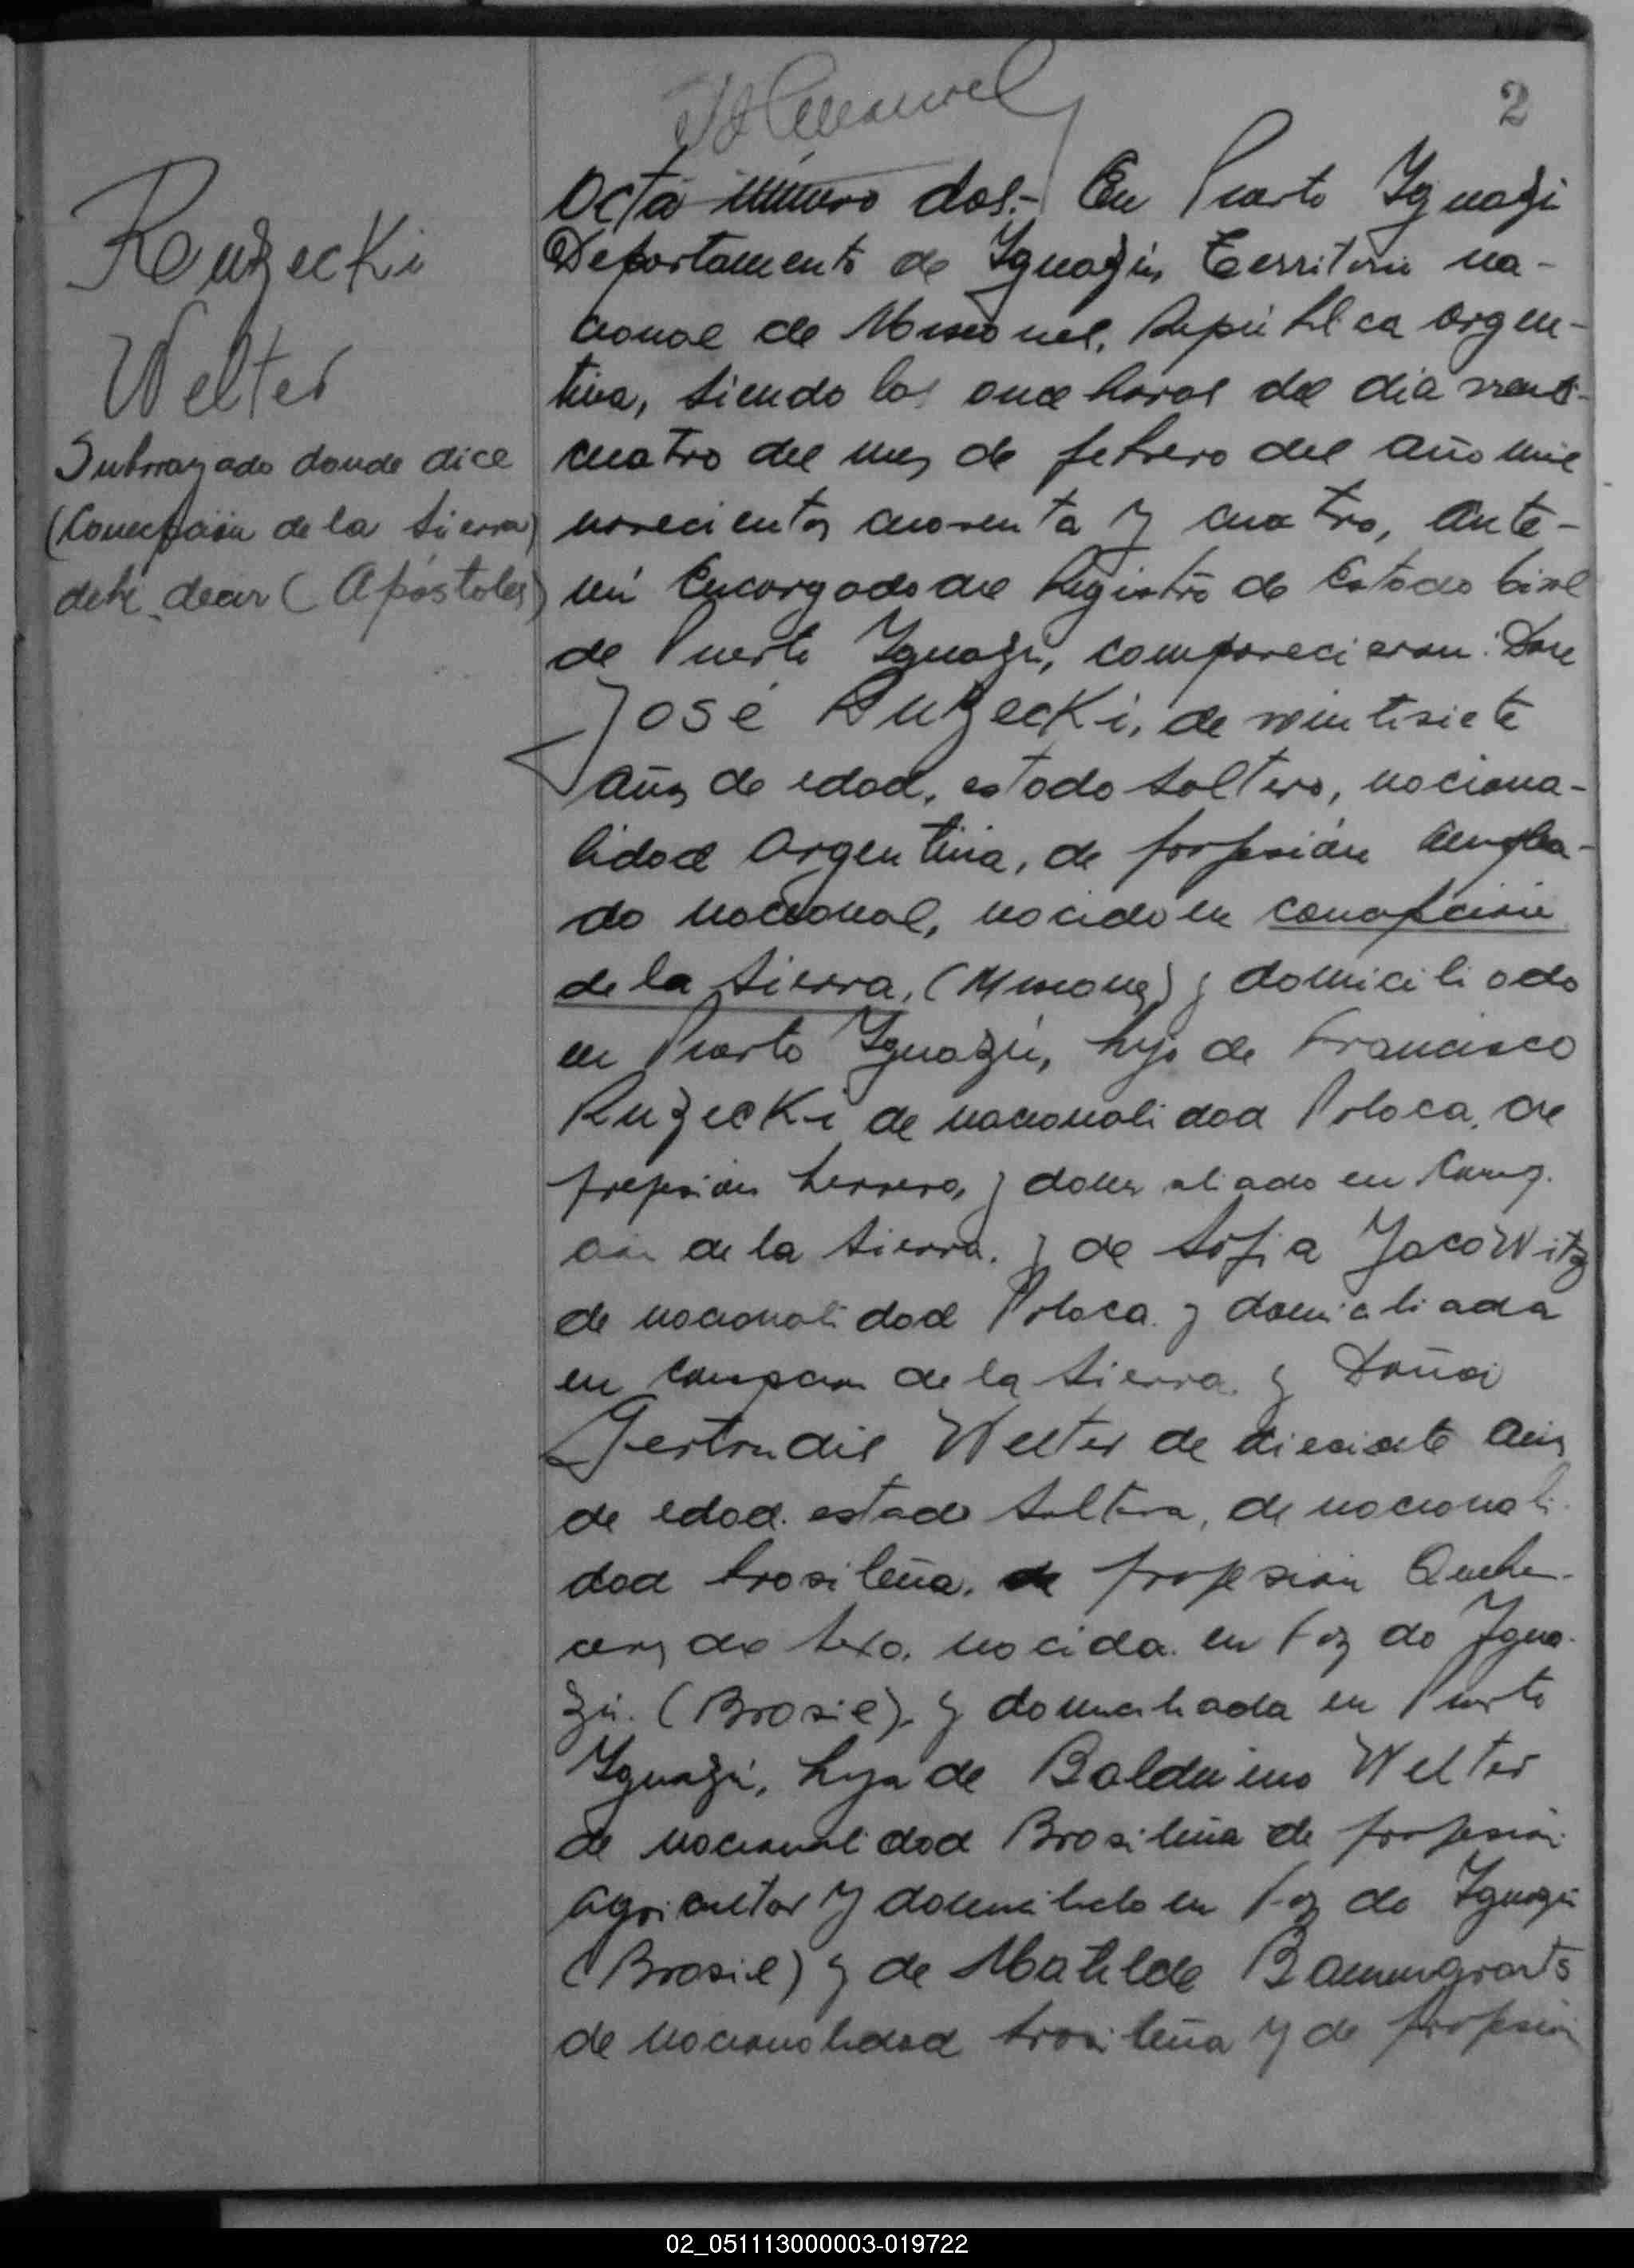 2
Ruzecki
Welter
Subrrayado donde dice
(Concepción de la Sierra)
debe decir (Apóstoles)
Acta número dos.- En Puerto Iguazú
Departamento de Iguazú, Territorio na-
cional de Misiones, República Argen-
tina, siendo las once horas del dia venti-
cuatro del mes de febrero del año mil
novecientos cuarenta y cuatro, Ante-
mí Encargado del Registro de Estado Civil
de Puerto Iguazú, comparecieron: Don
José Ruzecki, de veintisiete
años de edad, estado soltero, naciona-
lidad Argentina, de profesión Emplea-
do nacional, nacido en Concepción
de la Sierra, (Misiones) y domiciliado
en Puerto Iguazú, hijo de Francisco
Ruzecki de nacionalidad Polaca, de
profesión herrero, y domiciliado en
de la Sierra. y de Sofia Jacowitz
de nacionalidad Polaca y domiciliada
en Concepcion de la Sierra. y Doña
Gertrudis Welter de diesisiete años
de edad. estado soltera, de nacionali-
dad brasileña. de profesión Queha-
ceres del sexo. nacida en Foz do Igua-
zú. (Brasil). y domiciliada en Puerto
Iguazú, hija de Balduino Welter
de nacionalidad Brasileña de profesión
agricultor y domiciliado en Foz do Iguazú
(Brasil) y de Matilde Baumgrarts
de nacionalidad brasileña y de profesión
02_051113000003-019722